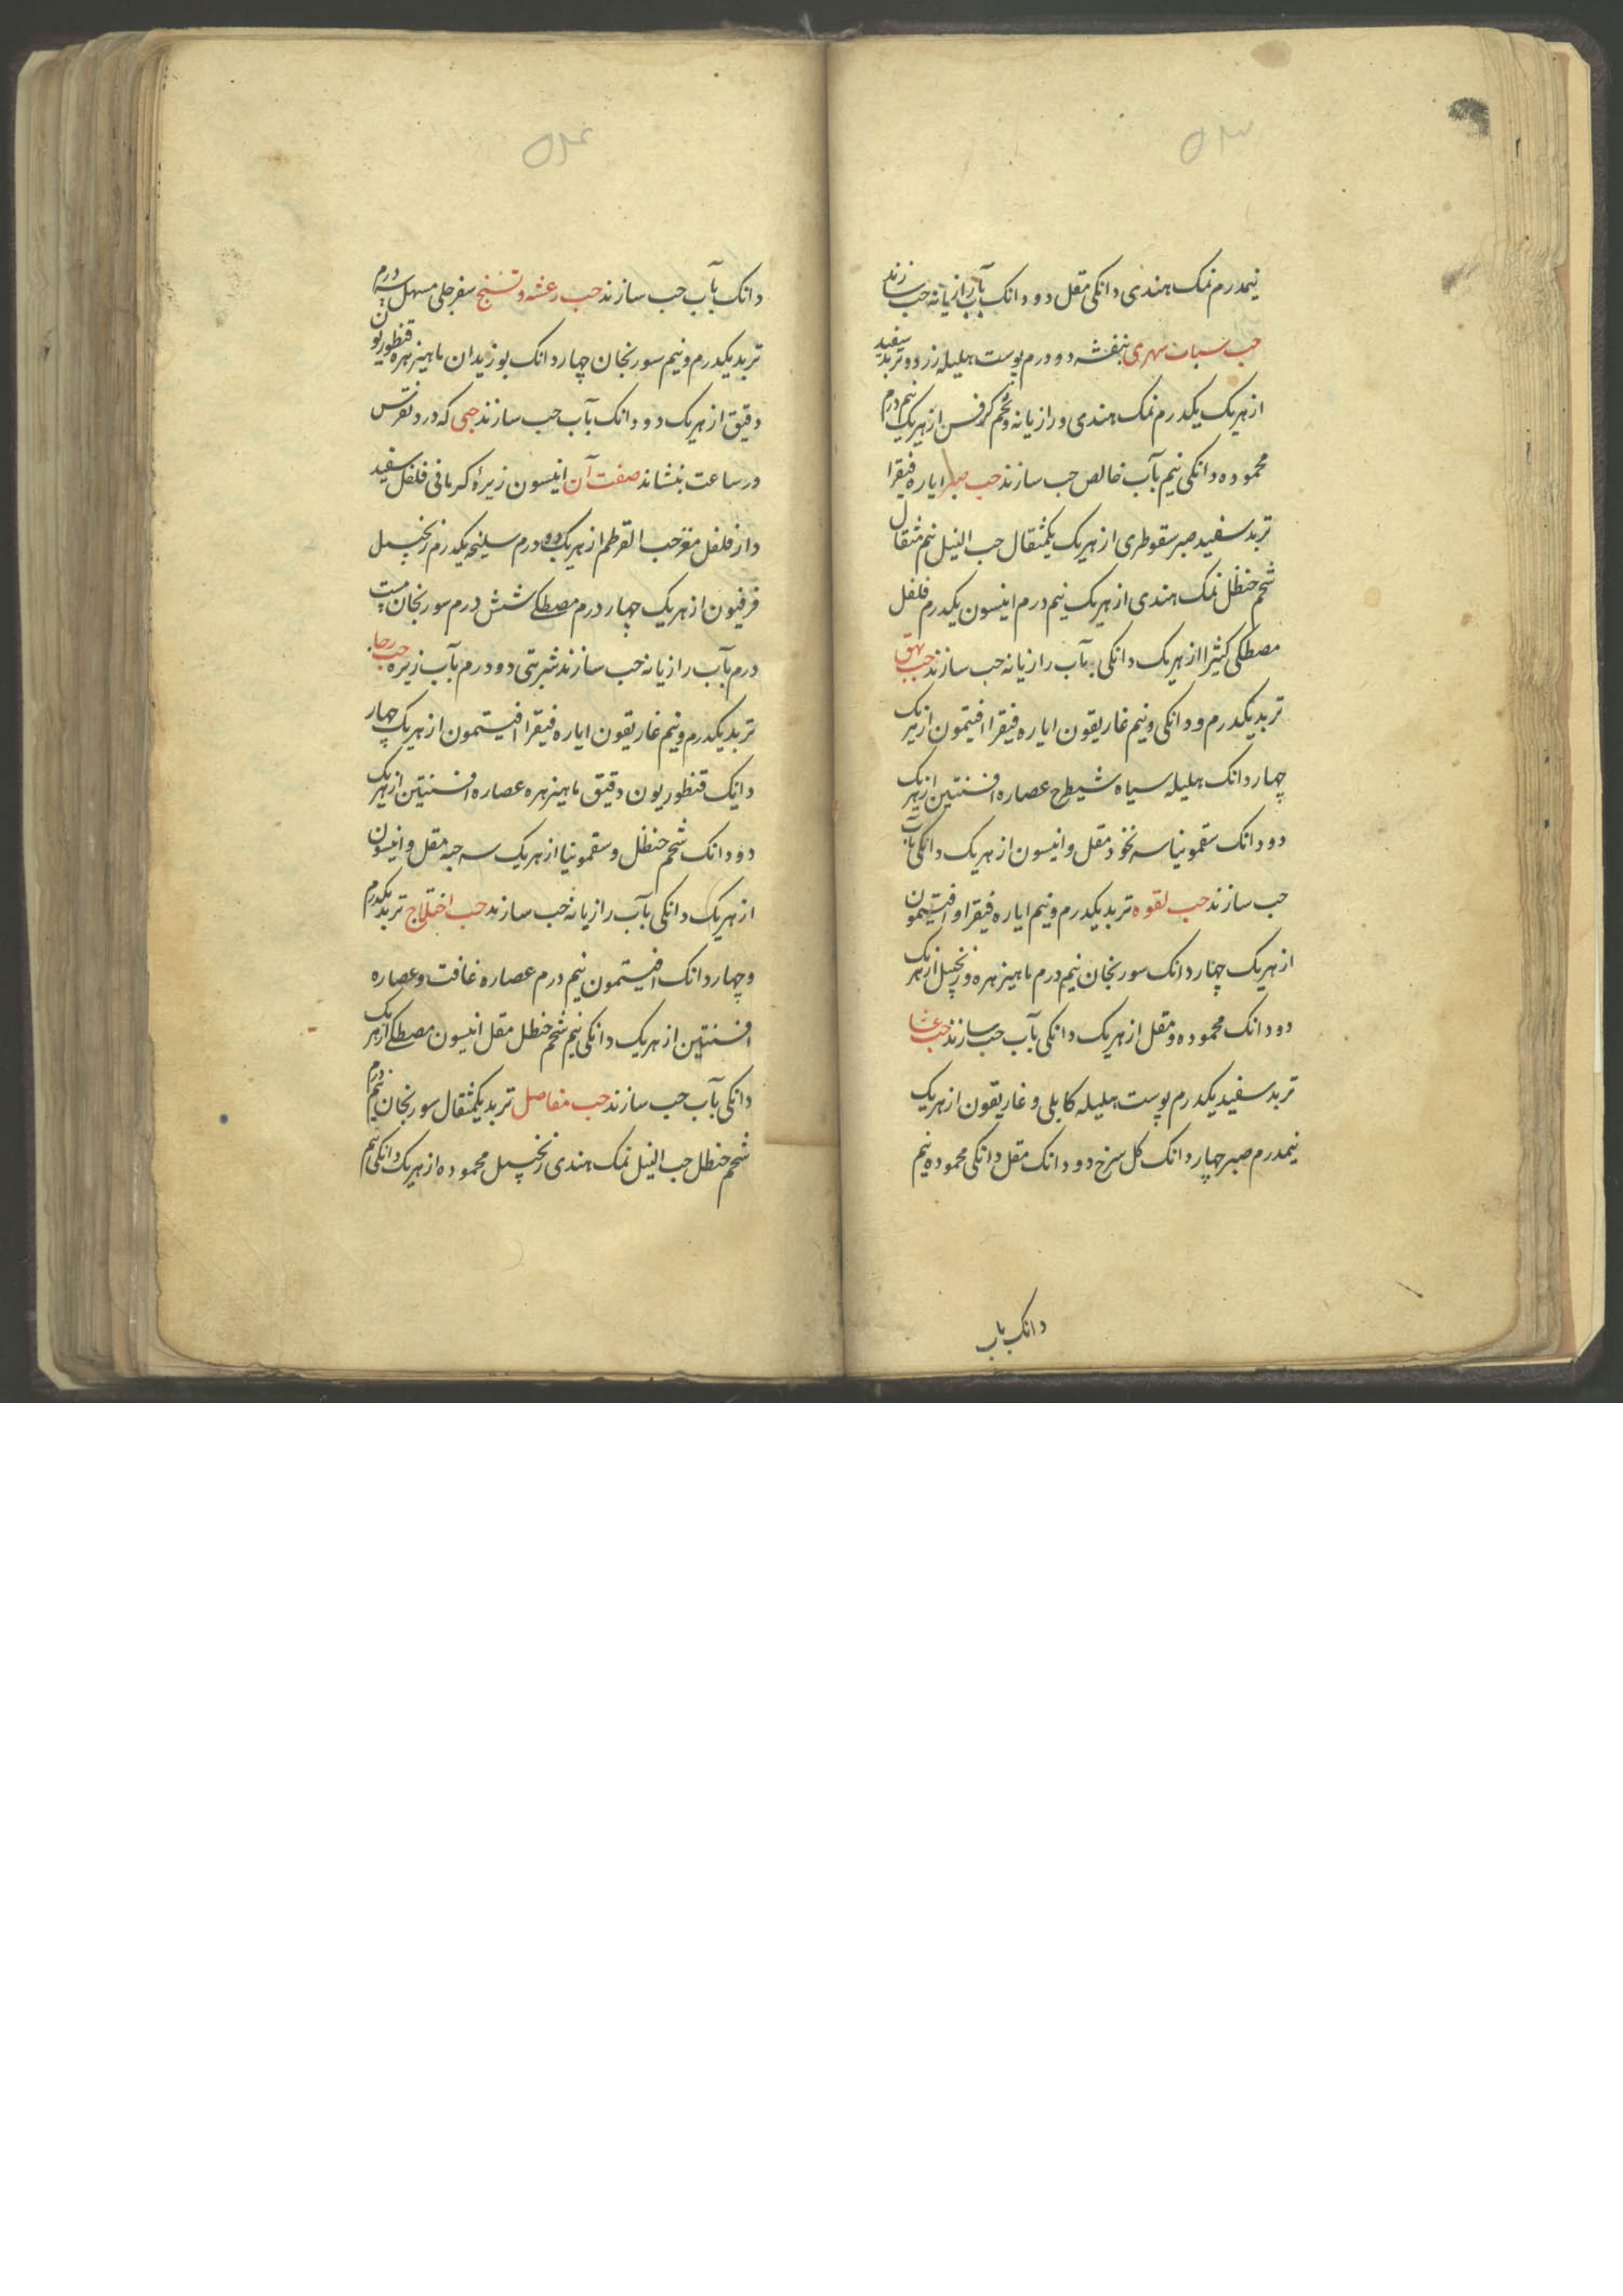 ۵۳
نیمدرم نمک هندی دانکی مقل دو دانک بآب رازیانه حب سازند
حب سبات سهری بنفشه دو درم پوست هلیله زرد و تربد سفید
از هریک یکدرم نمک هندی و رازیانه و تخم کرفس از هریک نیم درم
محموده دانکی نیم بآب خالص حب سازند حب صبر ایاره فیقرا
تربد سفید صبر سقوطری از هریک یکمثقال حب النیل نیم مثقال
شحم حنظل نمک هندی از هریک نیم درم انیسون یکدرم فلفل
مصطکی کثیرا از هریک دانکی بآب رازیانه حب سازند حب بهق
تربد یکدرم و دانکی و نیم غاریقون ایاره فیقرا افتیمون از هریک
چهار دانک هلیله سیاه شیطرح عصاره افسنتین از هریک
دو دانک سقمونیا سه نخود مقل و انیسون از هریک دانکی بآب
حب سازند حب لقوه تربد یکدرم و نیم ایاره فیقرا و افتیمون
از هریک چهار دانک سورنجان نیم درم ماهیزهره و زنجبیل از هریک
دو دانک محموده و مقل از هریک دانکی بآب حب سازند حب عشا
تربد سفید یکدرم پوست هلیله کابلی و غاریقون از هریک
نیمدرم صبر چهار دانک کل سرخ دو دانک مقل دانکی محموده نیم
دانک بآب
۵۴
دانک بآب حب سازند حب رعشه و تشنج سفرجلی مسهل سه درم
تربد یکدرم و نیم سورنجان چهار دانک بوزیدان ماهیزهره قنطوریون
دقیق از هریک دو دانک بآب حب سازند حبی که درد نقرس
در ساعت بنشاند صفت آن انیسون زیرهٔ کرمانی فلفل سفید
دار فلفل مغز حب القرطم از هریک دو درم سلیخه یکدرم زنجبیل
فرفیون از هریک چهار درم مصطکی شش درم سورنجان بیست
درم بآب رازیانه حب سازند شربتی دو درم بآب زیره حب رجا
تربد یکدرم و نیم غاریقون ایاره فیقرا افیتمون از هریک چهار
دانک قنطوریون دقیق ماهیزهره عصاره افسنتین از هریک
دو دانک شحم حنظل و سقمونیا از هریک سه حبه مقل و انیسون
از هریک دانکی بآب رازیانه حب سازند حب اختلاج تربد یکدرم
و چهار دانک افیتمون نیم درم عصاره غافت و عصاره
افسنتین از هریک دانکی نیم شحم حنظل مقل انیسون مصطکی از هریک
دانکی بآب حب سازند حب مفاصل تربد یکمثقال سورنجان نیم درم
شحم حنظل حب النیل نمک هندی زنجبیل محموده از هریک دانکی نیم